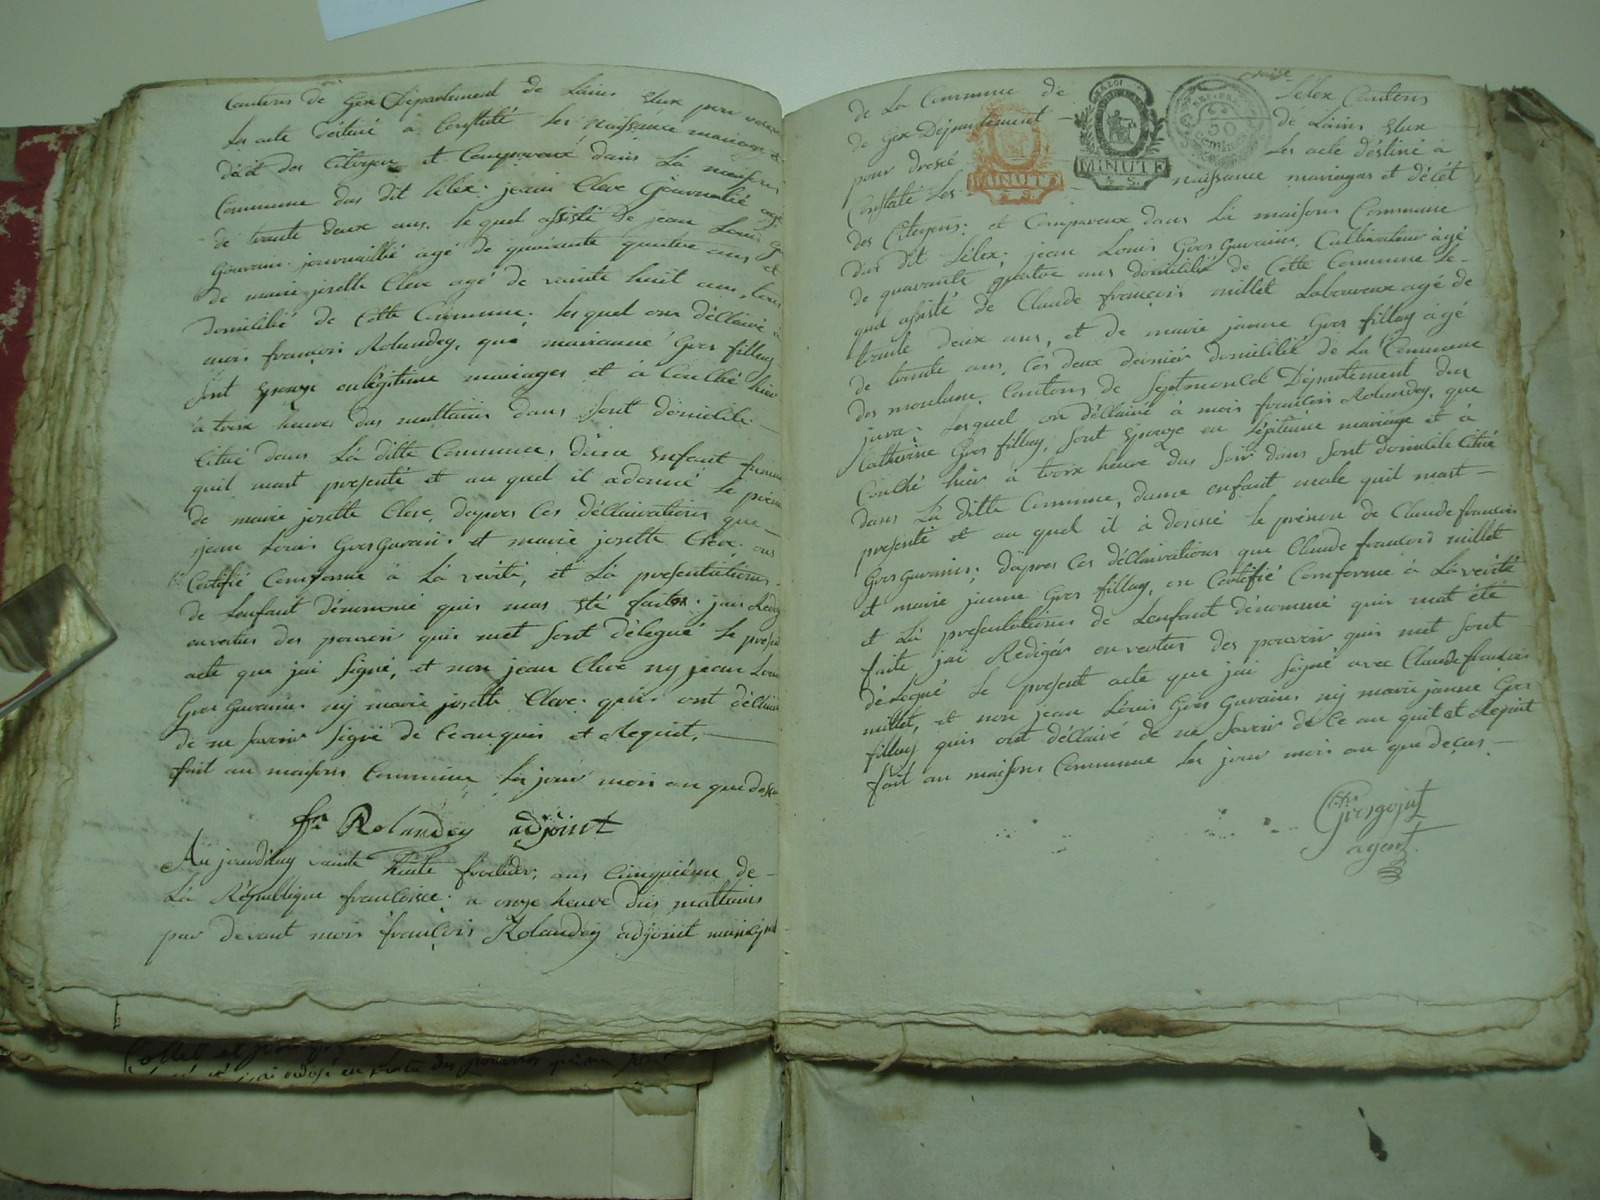 Cantons de Gex Département de Lains Elux pour
les acte déstiné à Constaté les naissance mariage et
décét des Citoyen et Comparaux dans La maison
Commune dus dit Lélex. jean Cleve journallié agé
de trante deux ans. le quel assisté de jean Louis
Gouvain journallié agé de quarante quatre ans et
de marie josette Cleve agé de vainte huit ans, tous
domicilié de Cette Commune. les quel onr déllairé à
moi françois Rolandey, que marianne Gros fillay
sont Epouze en légitime mariages et à Couché hier
à troix heures dus mattains dans sont domicile
Citué dans Là ditte Commune, dune Enfant
quil mast présenté et au quel il adonné le
de marie josette Cleve, dapres Ces déllairations que
jean Louis Gros Gurain. et marie josette Cleve. ons
Certifié Conforme à Là verité, et Là présentations
de Lenfant dénommé quis mas été faite. jai Rédigé
envertus des pouvoir quis met sont délegué le présent
acte que jai signé, et non jean Cleve ny jean Louis
Gros Gurain ny marie josette Cleve. quis ont déllairé
de ne savoir signé de Ceanquis et Requit,
fait au maisons Commune les jour mois an que desus
fr Rolandey adjoint
Au jourdhuy vainte huite frodidor, ans Cinquiéme de
Là République francoise. a onze heure dus mattains
par devant moi françois Rolandey adjoint
de La Commune de Lélex Cantons
de Gex Département de Lains Elux
pour dressé les acte déstiné à
Constaté les naissance mariages et décét
MINUTE
MINUTE
des Citoyens; et Comparaux dans Là maisons Commune
dus dit Lélex. jean Louis Gros Gurain, Cultivateur àgé
de quarante quatre ans domicilié de Cette Commune le
quel assisté de Claude françois millet Laboureux agé de
trante deux ans, et de marie janne Gros fillay àgé
de trante ans, Ces deux dernier domicilié de La Commune
des moulune Cantons de Septmoncel Département dus
jura. lesquel on déllairé à moi françois Rolandey, que
Catherine Gros fillay, sont Epouze en légitime mariage et à
Couché hier à troix heure dus soir dans sont domicile Citué
dans Là ditte Commune, dune enfant male quil mast
présenté et au quel il à donné le prénom de Claude françois
Gros Gurain; dapres Ces déllairations que Claude françois millet
et marie janne Gros fillay, on Certifié Conforme à La verité
et Là présentations de Lenfant dénommé quis mat été
faite jai Rédigés envertus des pouvoir quis met sont
délegué le présent acte que jai signé avec Claude françois
millet, et non jean Louis Gros Gurain ny marie janne Gros
fillay quis ont déllairé de ne savoir de Ce an quit et Requit
fait an maisons Commune les jour mois an que desus
Grosgojat
agent